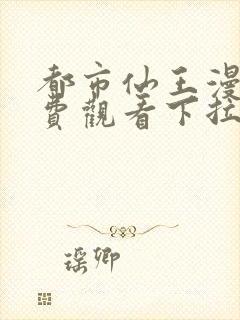 都市仙王漫
費觀看下拉
瑤卿